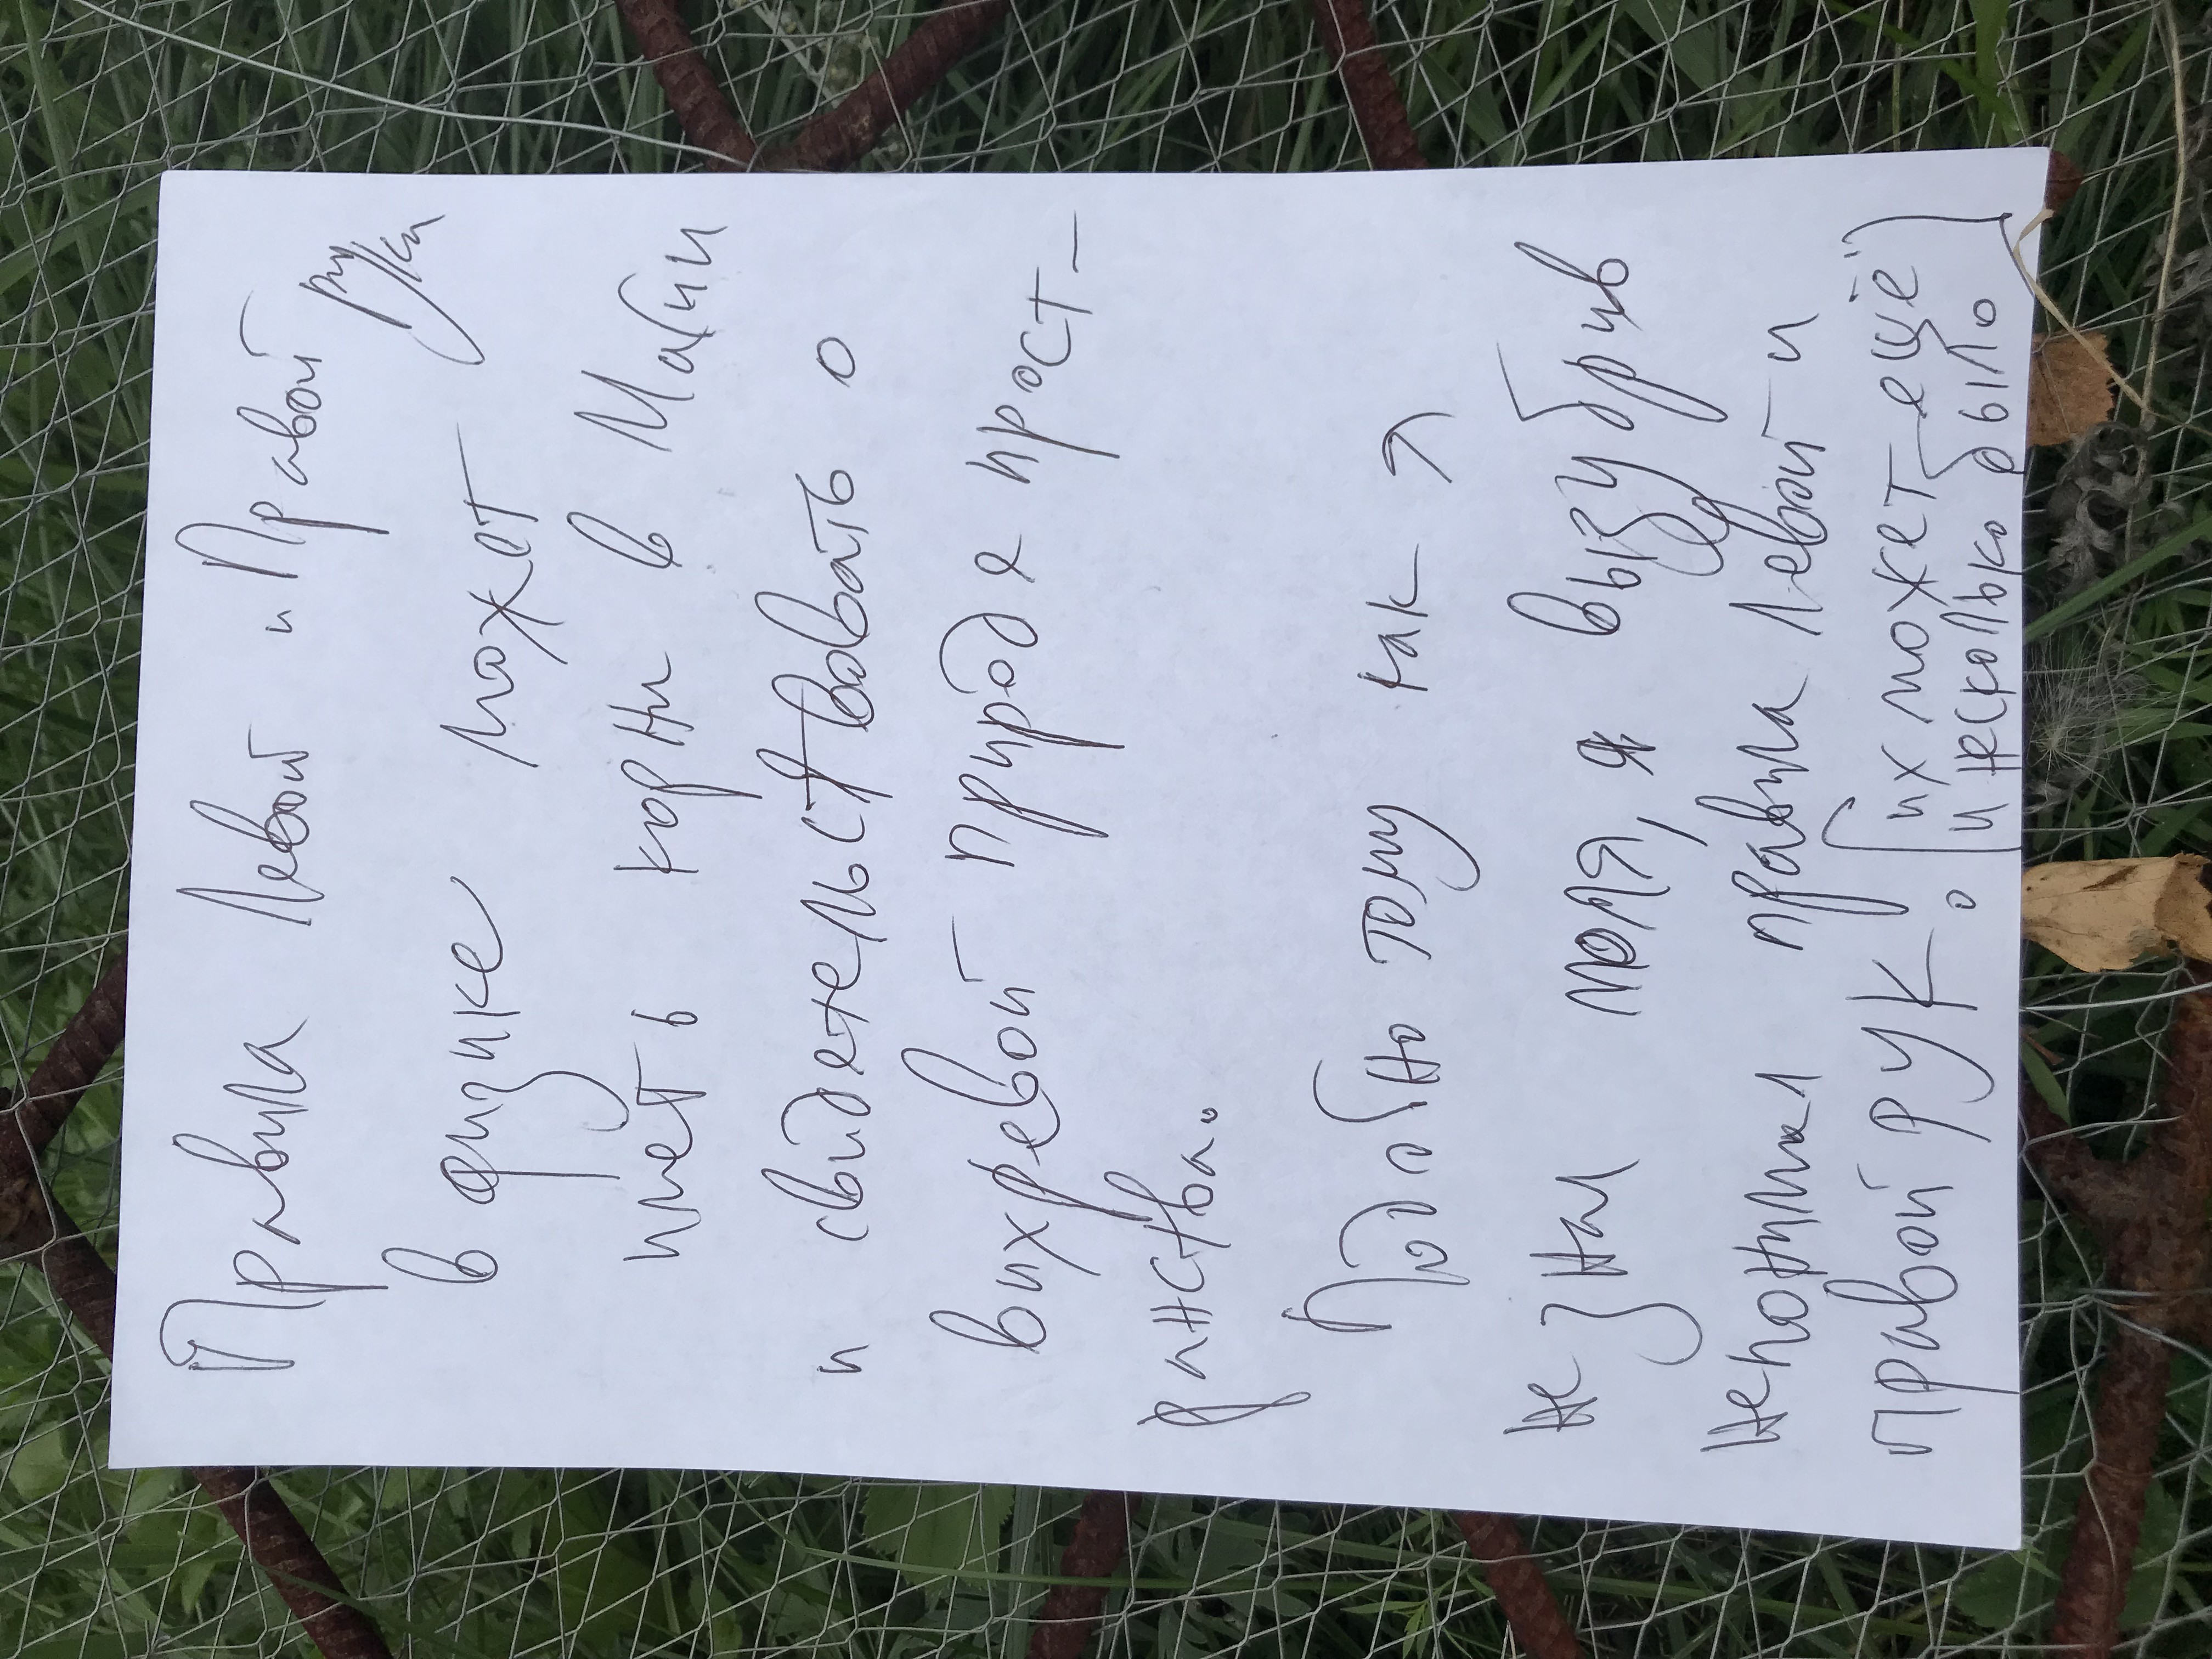 Правила Левой и Правой руки
в физике может
иметь корни в Магии
и свидетельствовать о
вихревой природе прост-
ранства.
Подобно тому как я
не знал моля, я вызубрив
не понимал правила левой и
правой рук. (их может ещё
и несколько было)